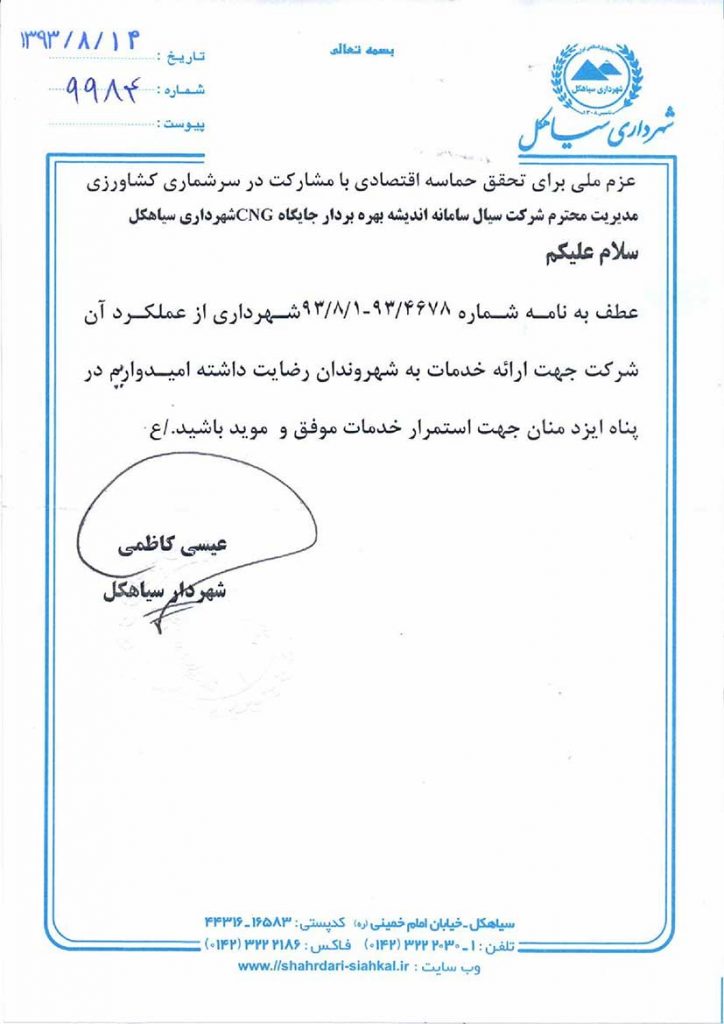 بسمه تعالی
شهرداری سیاهکل
شهرداری سیاهکل
تاریخ : ۱۳۹۳/۸/۱۴
شماره : ۹۹۸۴
پیوست :
عزم ملی برای تحقق حماسه اقتصادی با مشارکت در سرشماری کشاورزی
مدیریت محترم شرکت سیال سامانه اندیشه بهره بردار جایگاه CNGشهرداری سیاهکل
سلام علیکم
عطف به نامه شماره ۹۳/۴۶۷۸-۹۳/۸/۱شهرداری از عملکرد آن
شرکت جهت ارائه خدمات به شهروندان رضایت داشته امیدواریم در
پناه ایزد منان جهت استمرار خدمات موفق و موید باشید./ع
عیسی کاظمی
شهردار سیاهکل
سیاهکل ـ خیابان امام خمینی (ره) کدپستی : ۱۶۵۸۳ـ۴۴۳۱۶
تلفن : ۱ـ۲۰۳۰ ۳۲۲ (۰۱۴۲) فاکس : ۲۱۸۶ ۳۲۲ (۰۱۴۲)
وب سایت : www.//shahrdari-siahkal.ir